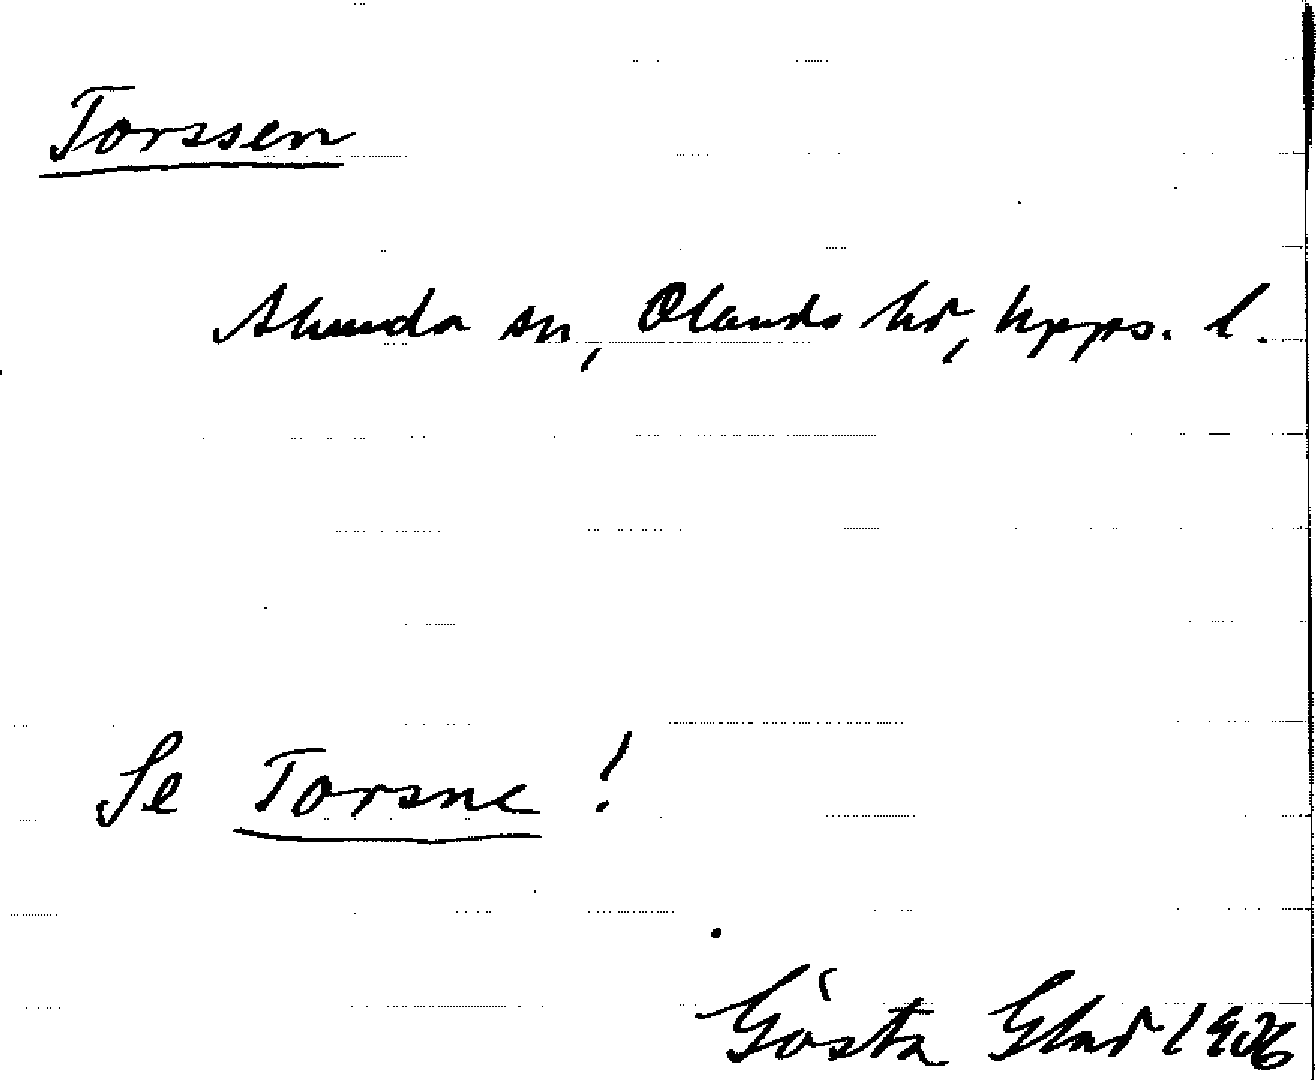 Torssen
Alunda sn, Olands hd, Upps. l.
Se Torsne!
Gösta